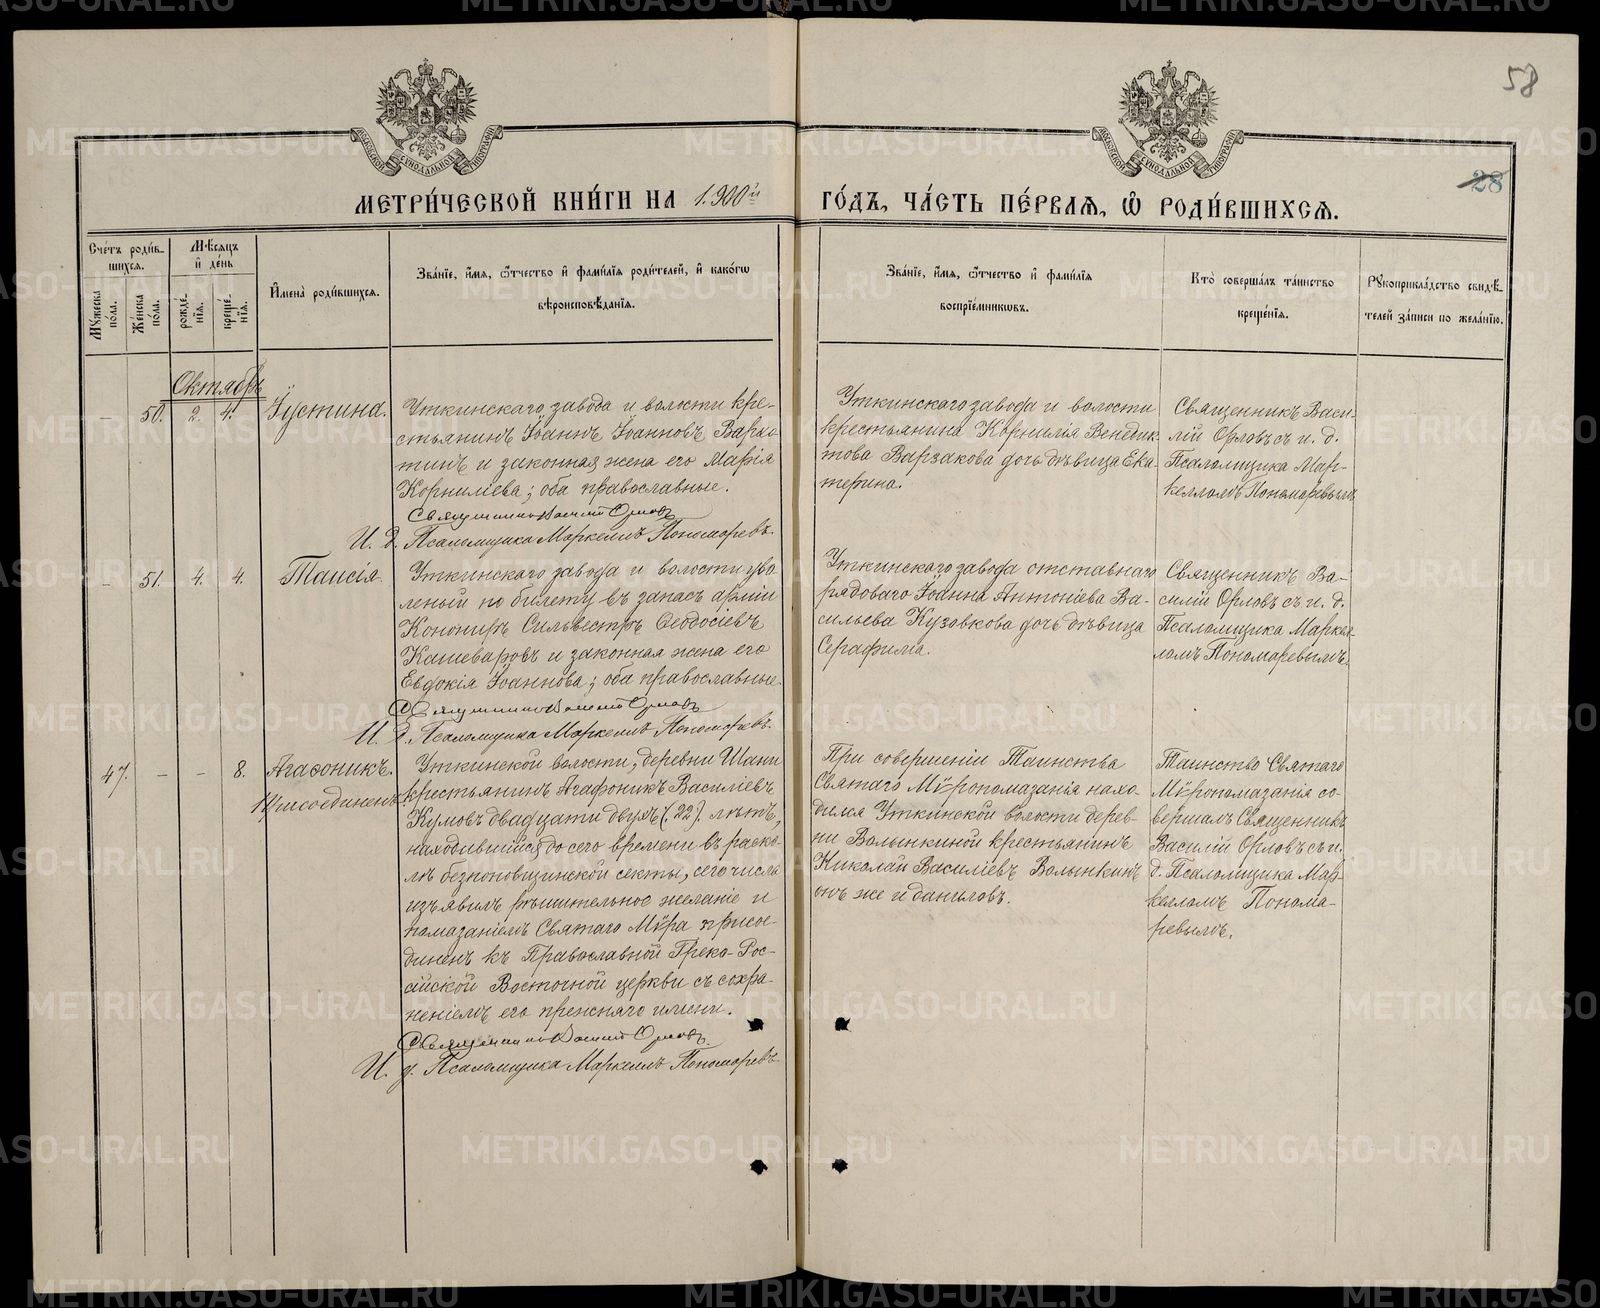 58
28
МЕТРИ́ЧЕСКОЙ КНИ́ГИ НА 1900й ГО́ДЪ, ЧА́СТЬ ПЕ́РВАЯ, Ѽ РОДИ́ВШИХСЯ.
Сче́тъ роди́в-
шихся.
Мꙋжеска по́ла.
Же́нска по́ла.
Мѣ́сяцъ
и҆ де́нь
рожде́-
нїя.
креще́-
нїя.
И҆мена̀ роди́вшихся.
Зва́нїе, и҆́мя, ѻ҆́тчество и҆ фами́лїя роди́телей, и҆ како́гѡ
вѣроисповѣ́данїя.
Зва́нїе, и҆́мя, ѻ҆́тчество и҆ фами́лїя
воспрїе́мниковъ.
Кто̀ соверша́лъ та́инство
креще́нїя.
Рꙋкоприкла́дство свидѣ́-
телей за́писи по жела́нїю.
Октябрь
– 50. 2. 4. Іустина.
Уткинскаго завода и волости кре-
стьянинъ Іоаннъ Іоанновъ
и законная жена его Марія
Корниліева; оба православные.
Священникъ Василій Орловъ
И. д. Псаломщика Маркеллъ Пономаревъ.
Уткинскаго завода и волости
крестьянина Корнилія Венедик-
това Варзакова дочь дѣвица Ека-
терина.
Священникъ Васи-
лій Орловъ съ и. д.
Псаломщика Мар-
келломъ Пономаревымъ
– 51. 4. 4. Таисія.
Уткинскаго завода и волости уво
леный по билету въ запасъ арміи
Канониръ Сильвестръ Ѳеодосіевъ
Кашеваровъ и законная жена его
Евдокія Іоаннова; оба православные.
Священникъ Василій Орловъ
И. д. Псаломщика Маркеллъ Пономаревъ.
Уткинскаго завода отставнаго
рядоваго Іоанна Антоніева Ва-
сильева Кузовкова дочь дѣвица
Серафима.
Священникъ Ва-
силій Орловъ съ и. д.
Псаломщика Маркел-
ломъ Пономаревымъ.
47. – – 8. Агаѳоникъ.
Присоединенъ
Уткинской волости, деревни
крестьянинъ Агафоникъ Василіевъ
Кумовъ двадцати двухъ (22). лѣтъ,
находившійся до сего времени въ раско-
лѣ безпоповщинской секты, сего числа
изъявилъ рѣшительное желаніе и
помазаніемъ Святаго Мѵра присое-
диненъ къ Православной Греко-Рос-
сійской Восточной церкви съ сохра-
неніемъ его прежняго имени.
Священникъ Василій Орловъ
И. д. Псаломщика Маркеллъ Пономаревъ.
При совершеніи Таинства
Святаго Мѵропомазанія нахо-
дился Уткинской волости дерев-
ни Волынкиной крестьянинъ
Николай Василіевъ Волынкинъ
онъ же и Даниловъ.
Таинство Святаго
Мѵропомазанія со-
вершалъ Священникъ
Василій Орловъ съ и.
д. Псаломщика Мар-
келломъ Понома-
ревымъ.
METRIKI.GASO-URAL.RU